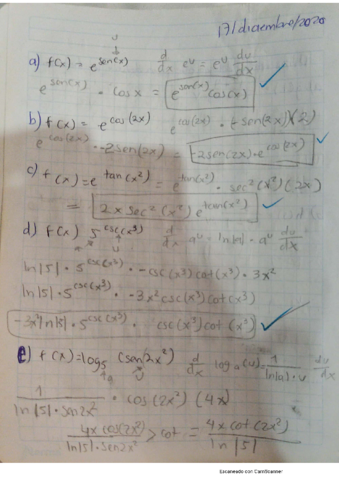 17/diciembre/2020
u
a) f(x) = e^sen(x) d/dx e^u = e^u du/dx
e^sen(x) · cos x = e^sen(x) cos(x)
b) f(x) = e^cos(2x) e^cos(2x) · -sen(2x)(2)
e^cos(2x) · -2sen(2x) = -2sen(2x)·e^cos(2x)
c) f(x) = e^tan(x²) = e^tan(x²) · sec²(x²)(2x)
= 2x sec²(x²) e^tan(x²)
d) f(x) 5^csc(x³) d/dx a^u = ln|a| · a^u du/dx
a u
ln|5| · 5^csc(x³) · -csc(x³)cot(x³) · 3x²
ln|5| · 5^csc(x³) · -3x²csc(x³)cot(x³)
-3x²ln|5| · 5^csc(x³) · csc(x³)cot(x³)
e) f(x) = log₅ (sen2x²) d/dx log a(u) = 1/ln(a)·u du/dx
a u
1/ln|5|·sen2x² · cos(2x²)(4x)
4x cos(2x²)/ln|5|·sen2x² > cot = 4x cot(2x²)/ln|5|
Escaneado con CamScanner